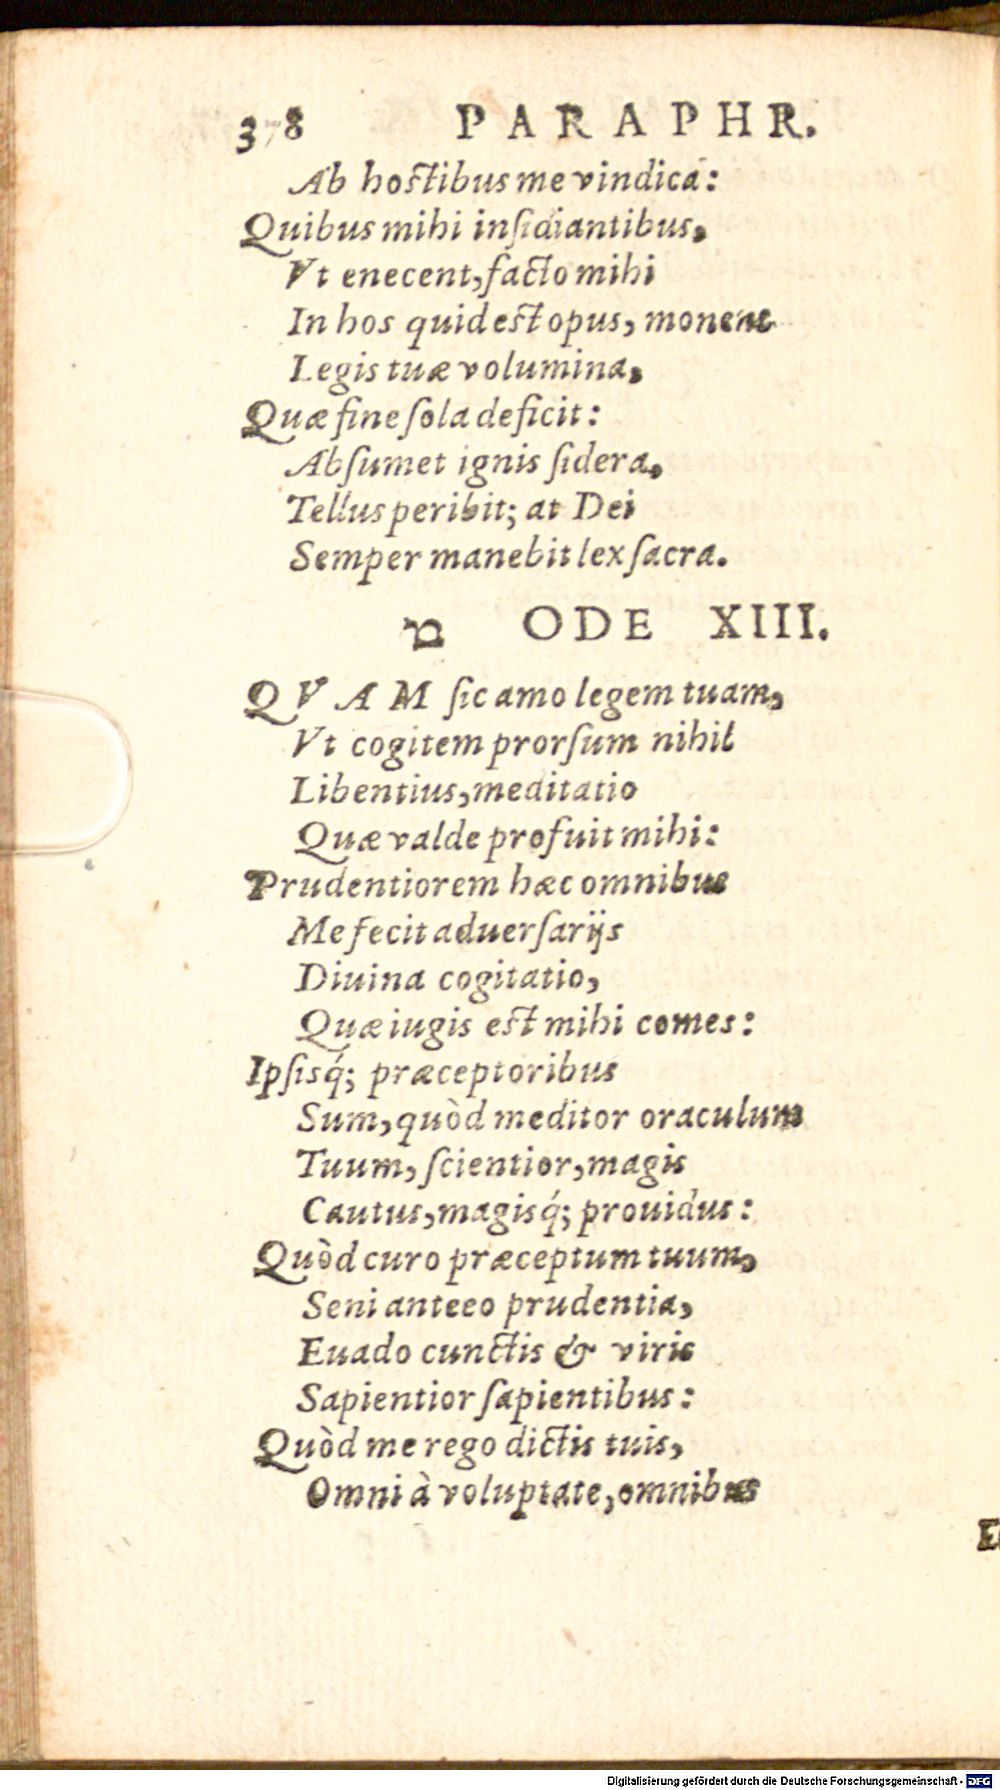 378 PARAPHR.
Ab hostibus me vindica:
Quibus mihi inſidiantibus,
Vt enecent, facto mihi
In hos quid est opus, monent
Legis tuæ volumina,
Quæ fine ſola deficit:
Abſumet ignis ſidera,
Tellus peribit; at Dei
Semper manebit lex ſacra.
מ ODE XIII.
QVAM ſic amo legem tuam,
Vt cogitem prorſum nihil
Libentius, meditatio
Quæ valde profuit mihi:
Prudentiorem hæc omnibus
Me fecit aduerſarijs
Diuina cogitatio,
Quæ iugis est mihi comes:
Ipſisq́; præceptoribus
Sum, quòd meditor oraculum
Tuum, ſcientior, magis
Cautus, magisq́; prouidus:
Quòd curo præceptum tuum,
Seni anteeo prudentia,
Euado cunctis & viris
Sapientior ſapientibus:
Quòd me rego dictis tuis,
Omni à voluptate, omnibus
Digitalisierung gefördert durch die Deutsche Forschungsgemeinschaft - DFG